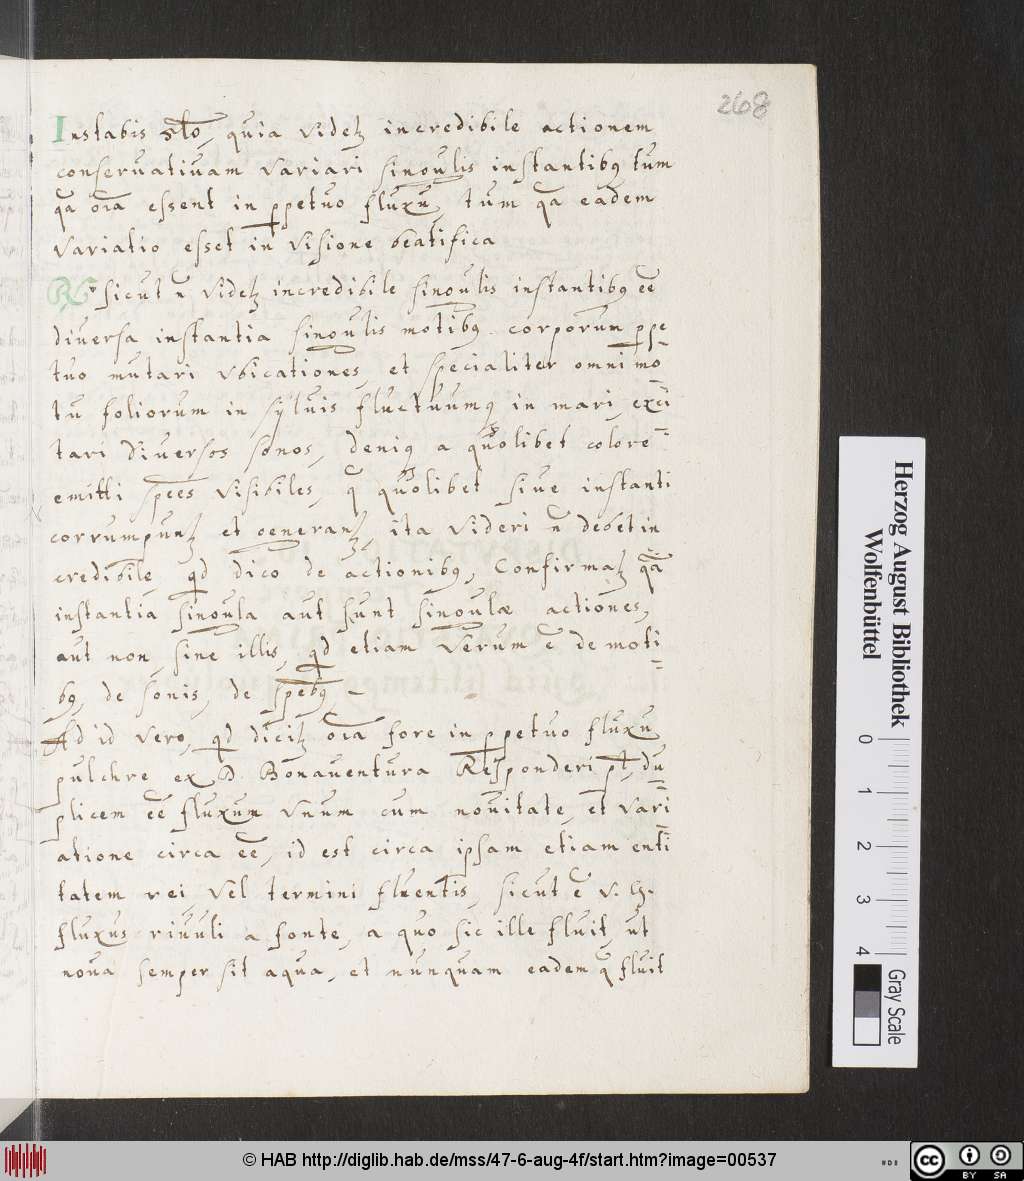 268
Instabis 5to, quia videtꝫ incredibile actionem
conseruatiuam variari singulis instantibꝰ tum
qa̅ oi̅a essent in ꝑpetuo fluxu, tum qa̅ eadem
variatio esset in visione beatifica
Rꝰ sicut n̅ videtꝫ incredibile singulis instantibꝰ ee̅
diuersa instantia singulis motibꝰ corporum ꝑpe
tuo mutari vbicationes, et specialiter omni mo
tu foliorum in syluis fluctuumqꝫ in mari, exci
tari diuersos sonos, deniqꝫ a quolibet colore
emitti spe̅es visibiles, q̅ quolibet siue instanti
corrumpuntꝫ et generantꝫ, ita videri n̅ debet in
credibile, qd dico de actionibꝰ, Confirmatꝫ qa̅
instantia singula aut sunt singulæ actiones,
aut non sine illis, qd etiam verum e̅ de moti
bꝰ, de sonis, de spe̅bꝰ, –
Ad id vero, qd dicitꝫ oi̅a fore in ꝑpetuo fluxu
pulchre ex D. Bonauentura Responderi pt̅, du
plicem ee̅ fluxum vnum cum nouitate, et vari
atione circa ee̅, id est circa ipsam etiam enti
tatem rei vel termini fluentis, sicut e̅ v. g.
fluxus riuuli a fonte, a quo sic ille fluit, ut
noua semper sit aqua, et nunquam eadem q̅ fluit
Herzog August Bibliothek
Wolfenbüttel
0 1 2 3 4
Gray Scale
© HAB http://diglib.hab.de/mss/47-6-aug-4f/start.htm?image=00537
cc BY SA